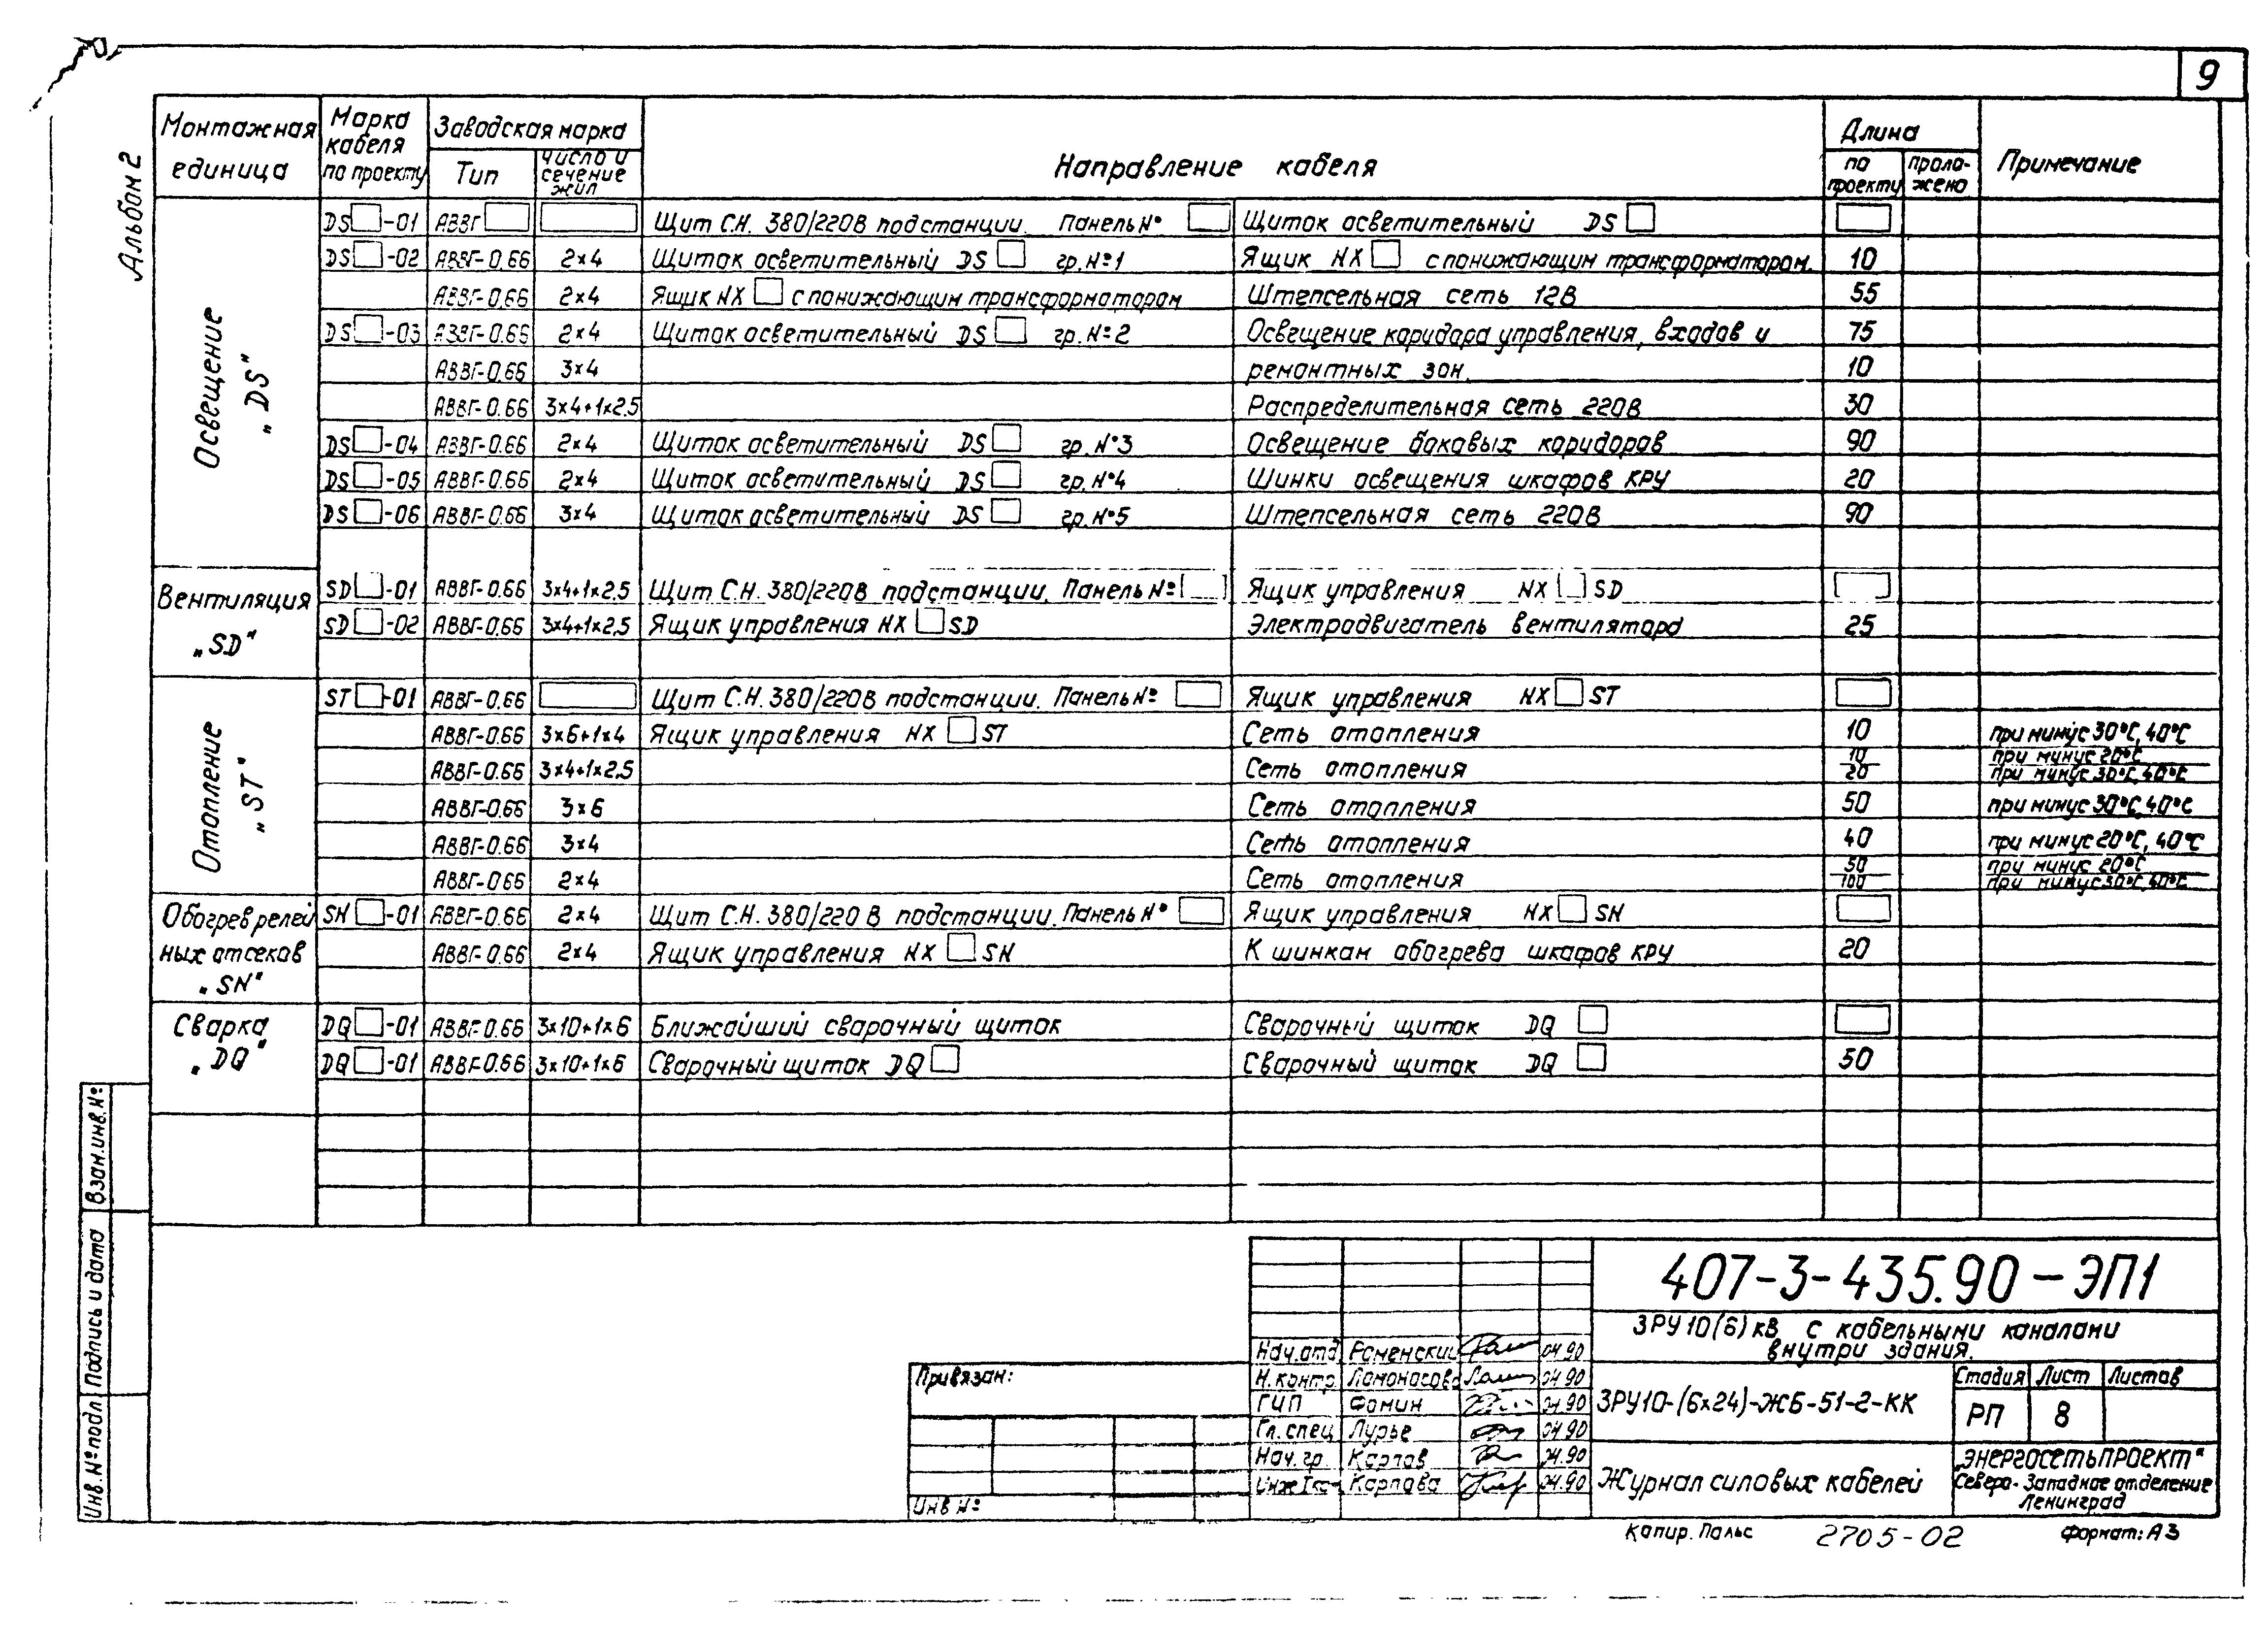 9
Альбом 2
Монтажная единица
Марка кабеля по проекту
Заводская марка
Тип
Число и сечение жил
Направление кабеля
Длина
по проекту
проложено
Примечание
Освещение „DS"
DS□-01 АВВГ□ □ Щит С.Н. 380/220В подстанции. Панель №□ Щиток осветительный DS□ □
DS□-02 АВВГ-0.66 2×4 Щиток осветительный DS□ гр. №1 Ящик NX□ с понижающим трансформатором. 10
АВВГ-0.66 2×4 Ящик NX□ с понижающим трансформатором Штепсельная сеть 12В 55
DS□-03 АВВГ-0.66 2×4 Щиток осветительный DS□ гр. №2 Освещение коридора управления, входов и 75
АВВГ-0.66 3×4 ремонтных зон. 10
АВВГ-0.66 3×4+1×2.5 Распределительная сеть 220В 30
DS□-04 АВВГ-0.66 2×4 Щиток осветительный DS□ гр. №3 Освещение боковых коридоров 90
DS□-05 АВВГ-0.66 2×4 Щиток осветительный DS□ гр. №4 Шинки освещения шкафов КРУ 20
DS□-06 АВВГ-0.66 3×4 Щиток осветительный DS□ гр. №5 Штепсельная сеть 220В 90
Вентиляция „SD"
SD□-01 АВВГ-0.66 3×4+1×2.5 Щит С.Н. 380/220В подстанции. Панель №□ Ящик управления NX□SD □
SD□-02 АВВГ-0.66 3×4+1×2.5 Ящик управления NX□SD Электродвигатель вентилятора 25
Отопление „ST"
ST□-01 АВВГ-0.66 □ Щит С.Н. 380/220В подстанции. Панель №□ Ящик управления NX□ST □
АВВГ-0.66 3×6+1×4 Ящик управления NX□ST Сеть отопления 10 при минус 30°С, 40°С
АВВГ-0.66 3×4+1×2.5 Сеть отопления 10/20 при минус 20°С / при минус 30°С, 40°С
АВВГ-0.66 3×6 Сеть отопления 50 при минус 30°С, 40°С
АВВГ-0.66 3×4 Сеть отопления 40 при минус 20°С, 40°С
АВВГ-066 2×4 Сеть отопления 50/100 при минус 20°С / при минус 30°С, 40°С
Обогрев релейных отсеков „SN"
SN□-01 АВВГ-0.66 2×4 Щит С.Н. 380/220 В подстанции. Панель №□ Ящик управления NX□SN □
АВВГ-0.66 2×4 Ящик управления NX□SN К шинкам обогрева шкафов КРУ 20
Сварка „DQ"
DQ□-01 АВВГ-0.66 3×10+1×6 Ближайший сварочный щиток Сварочный щиток DQ□ □
DQ□-01 АВВГ-0.66 3×10+1×6 Сварочный щиток DQ□ Сварочный щиток DQ□ 50
Взам.инв.№
Подпись и дата
Инв.№подл
Привязан:
Инв №
407-3-435.90-ЭП1
ЗРУ 10(6) кВ с кабельными каналами
внутри здания.
Нач.отд Роменский 04.90
Н.контр. Ломоносова 04.90
ГИП Фомин 04.90
Гл.спец Лурье 04.90
Нач.гр. Карпов 04.90
Инж I кат Карпова 04.90
ЗРУ10-(6×24)-ЖБ-51-2-КК
Стадия Лист Листов
РП 8
Журнал силовых кабелей
„ЭНЕРГОСЕТЬПРОЕКТ"
Северо-Западное отделение
Ленинград
Копир. Пальс
2705-02
Формат: А3